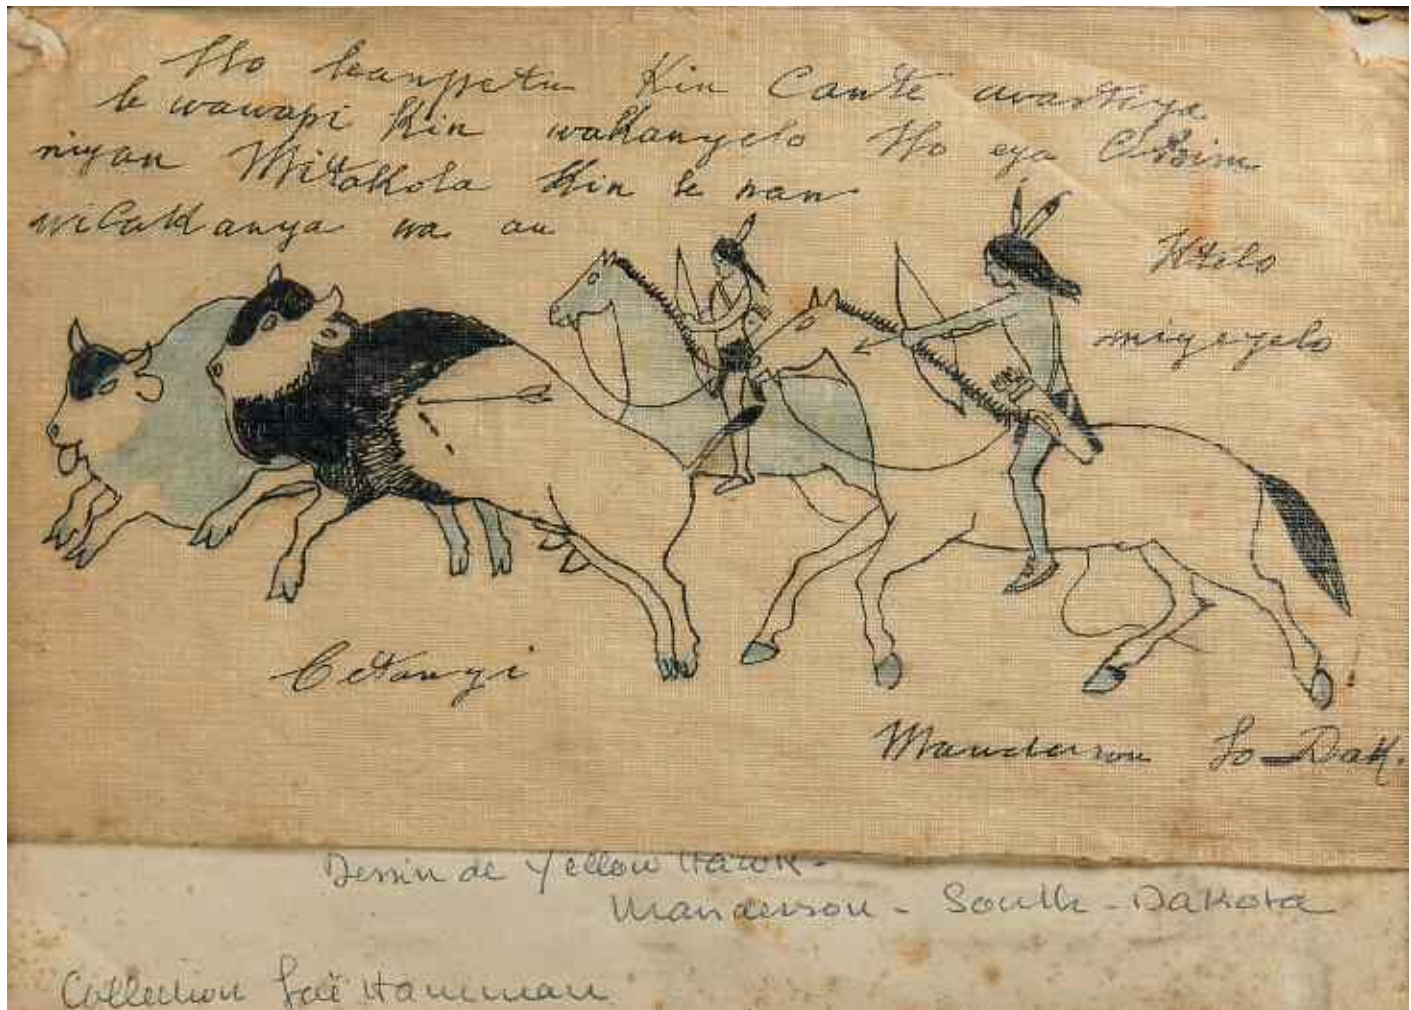 Ho leanpetu Kin Cante wastiya
le wawapi Kin wakanyelo Ho eya
niyan Mitakola Kin le nan
wicakanya wa au
Ktelo
miyeyelo
Cetangi
Manderson So-Dak.
Dessin de Yellow Hawk-
Manderson - South - Dakota
Collection Joë Hamman